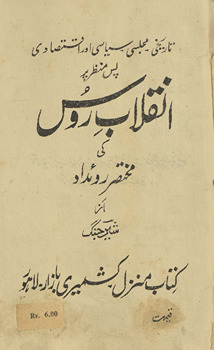 تاریخی مجلسی سیاسی اور اقتصادی
پس منظر پر
انقلاب روس
کی
مختصر روئداد
از
جنگ
کتاب منزل کشمیری بازار لاہور
قیمت
Rs. 6.00